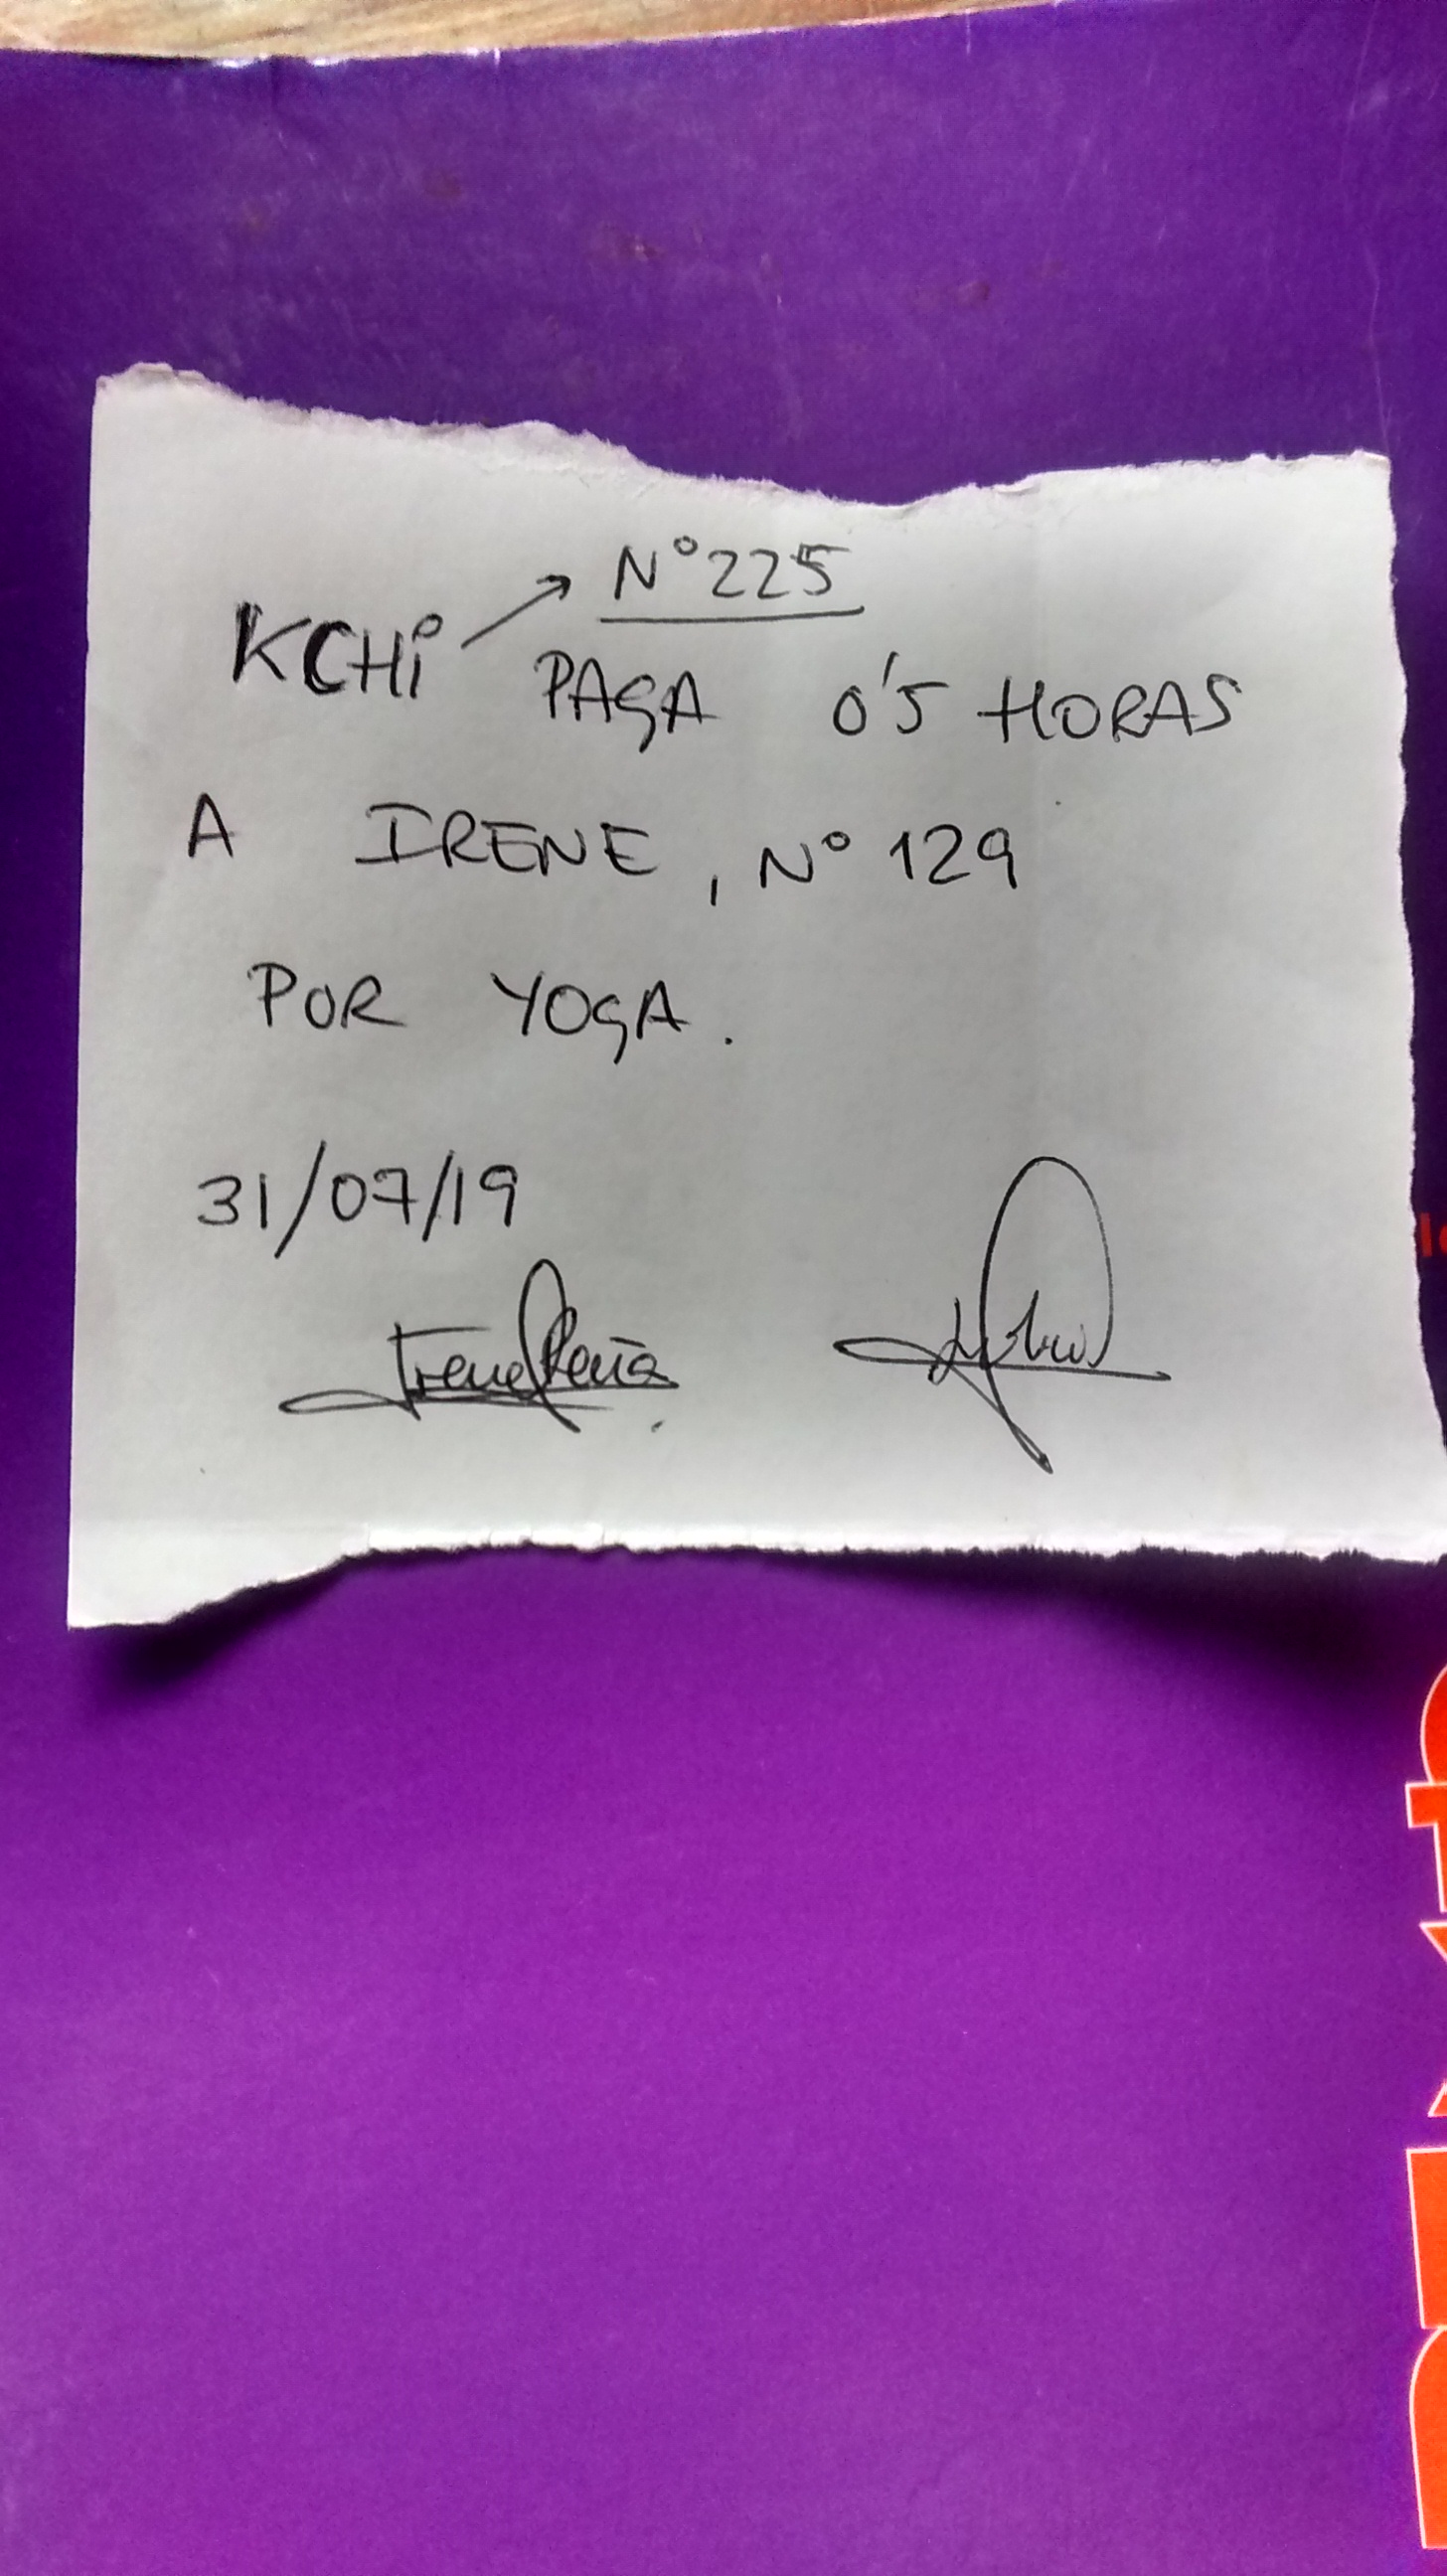 Nº 225
KCHi → PAGA 0'5 HORAS
A IRENE, Nº 129
POR YOGA.
31/07/19
Irene Peña